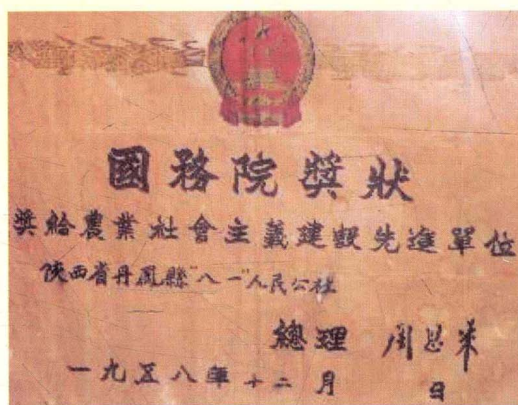 國務院獎狀
獎給農業社會主義建設先進單位
陝西省丹鳳縣“八一”人民公社
總理 周恩來
一九五八年十二月 日